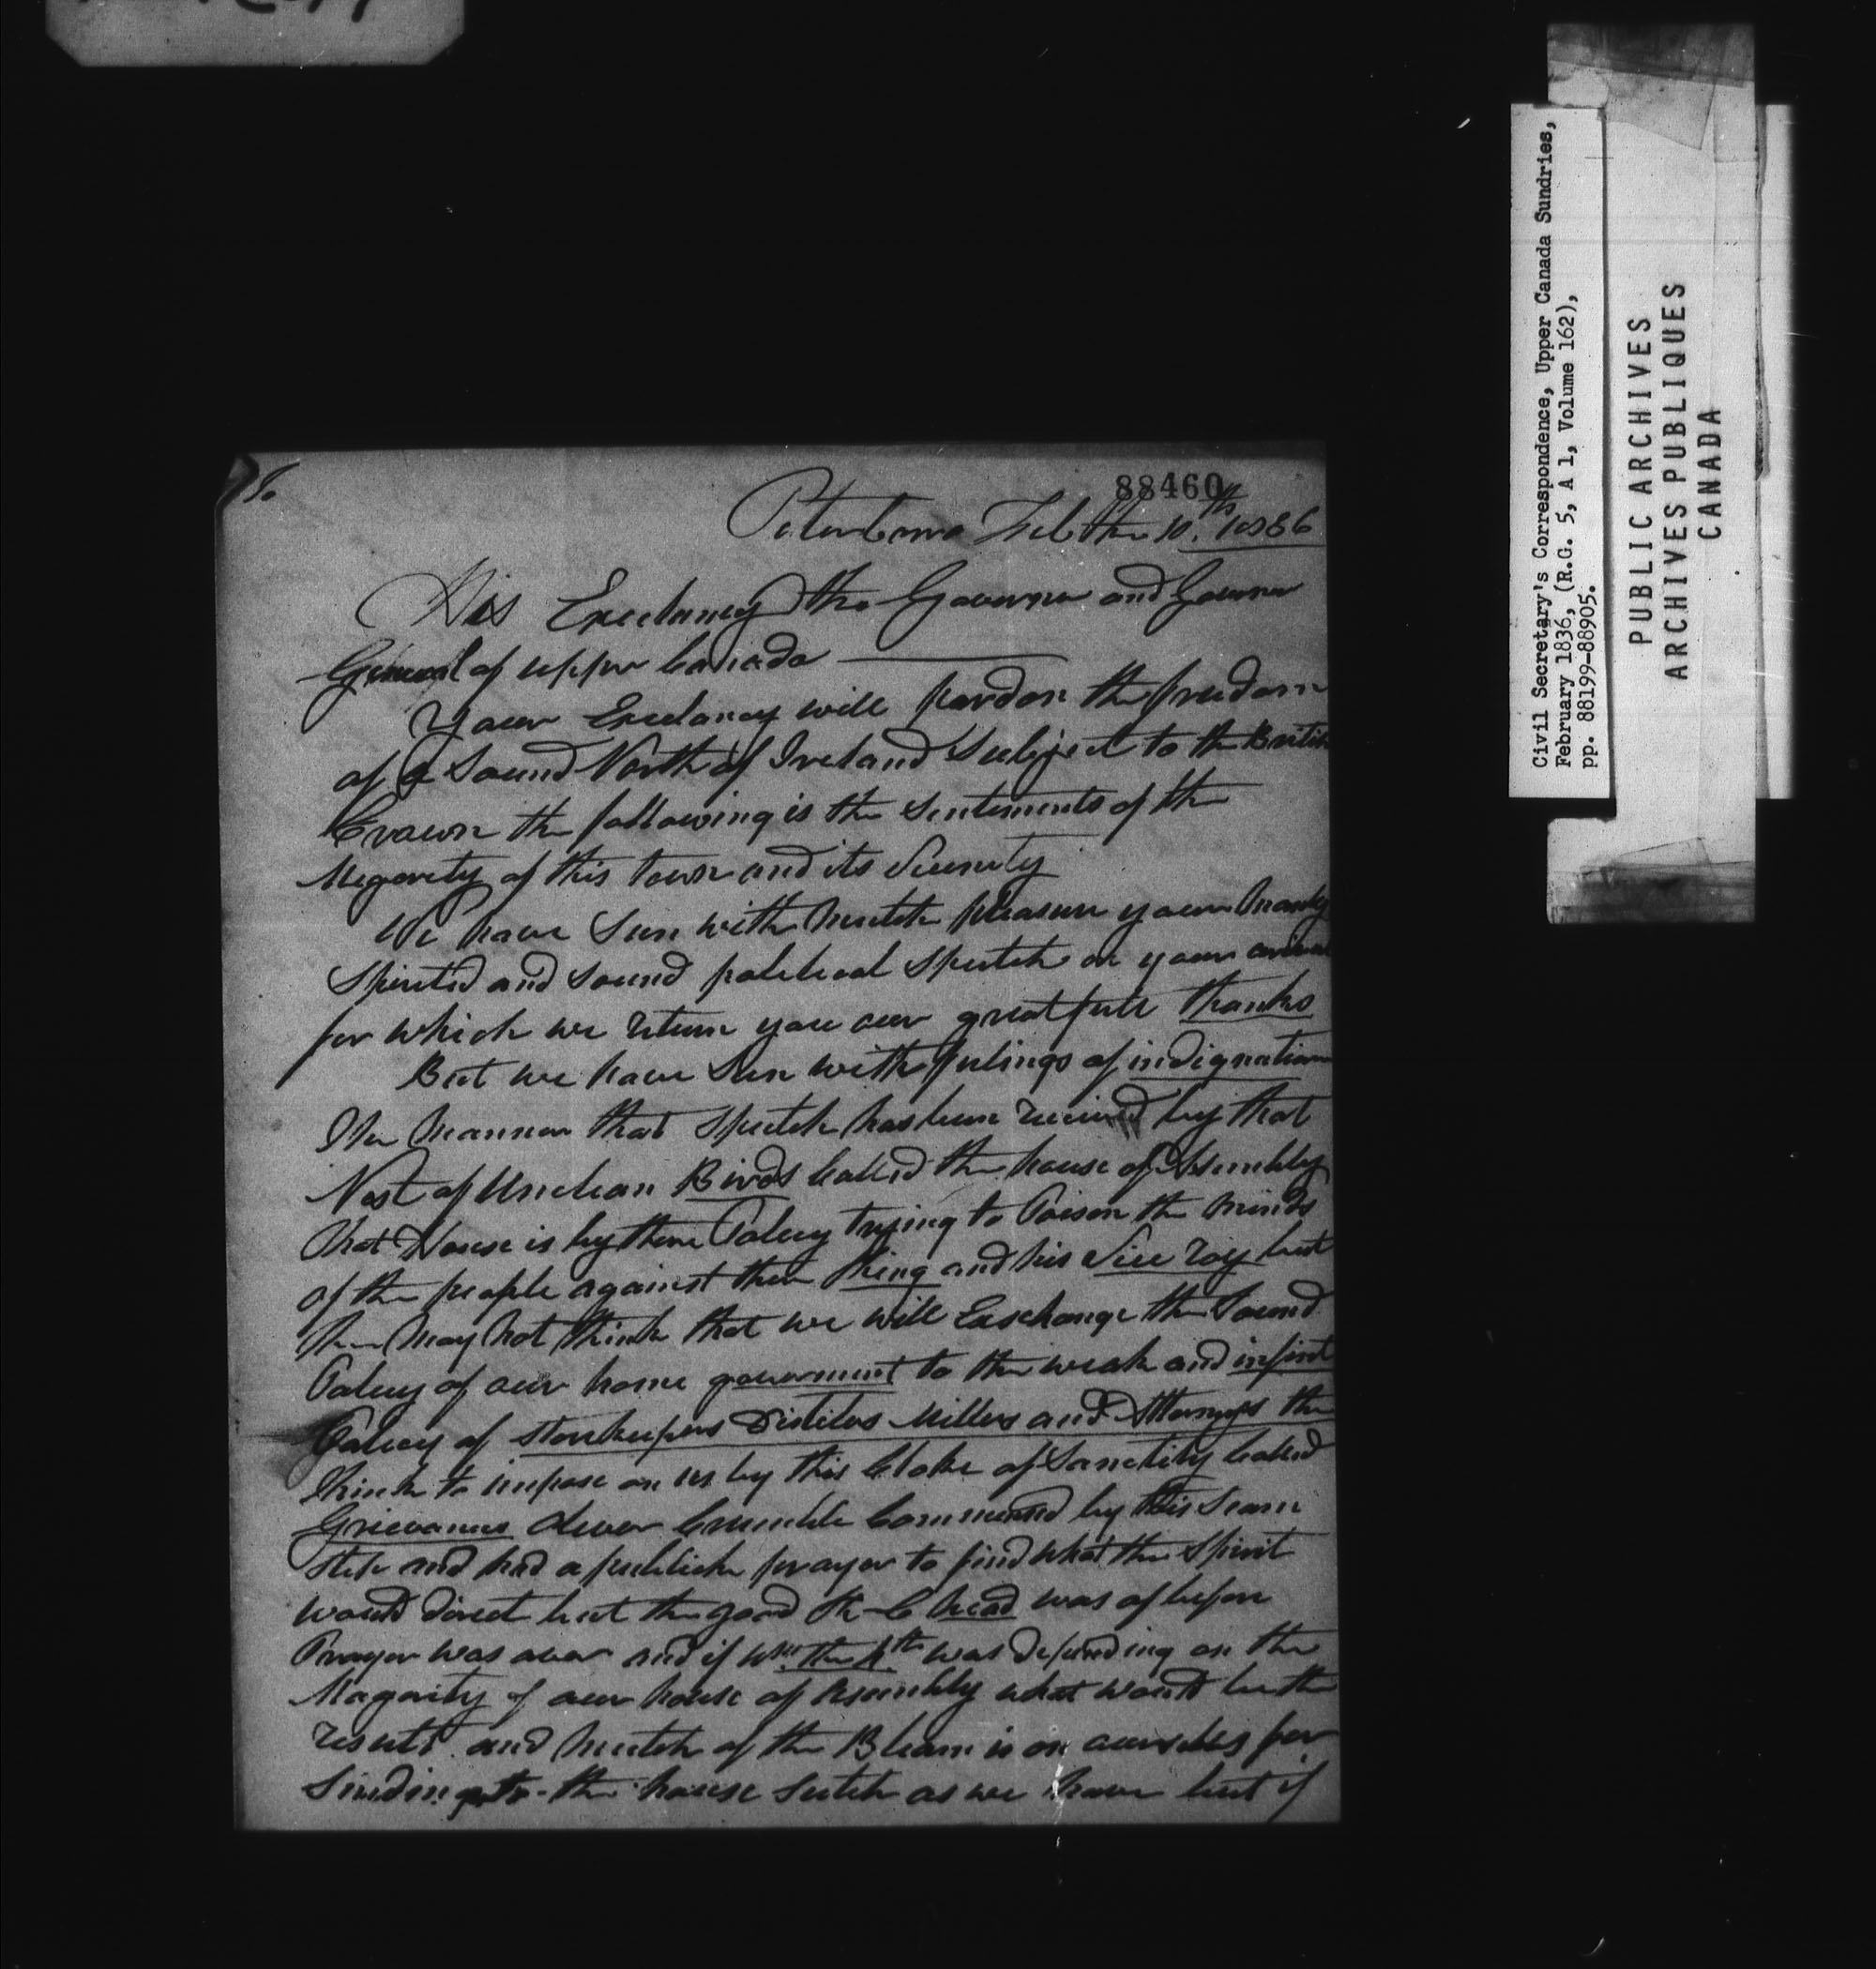 88460
Peterboro Feb the 10.th 1836
His Excelancy the Governor and Governor
General of upper Canada
Your Excelancy will pardon the freedom
of a Sound North of Ireland Subject to the British
Crown the following is the Sentiments of the
Megority of this town and its Vicenity
We have Seen with mutch pleasure your manly
Spirited and Sound political Speetch on your arival
for which we return you our greatfull thanks
But we have Seen with feelings of indignation
The manner that Speetch has been received by that
Nest of Unclean Birds Called the house of Assembly
that House is by there Policy trying to Poison the minds
of the people against their King and his Vice roy but
the may not think that we will Exchange the Sound
Policy of our home goverment to the weak and
Policy of Storekeepers Distilers Millers and Attorneys the
think to impose on us by this Cloke of Sanctity Called
Grievances Oliver Commenced by this Seam
Steh and had a publick prayer to find what the Spirit
would direct but the good K- C head was of before
Prayer was over and if Wm. the 4th was depending on the
Magority of our house of Assembly what would be the
result and mutch of the Bleam is on ourselves for
Sinding to the house Sutch as we have but if
Civil Secretary's Correspondence, Upper Canada Sundries,
February 1836, (R.G. 5, A 1, Volume 162),
pp. 88199-88905.
PUBLIC ARCHIVES
ARCHIVES PUBLIQUES
CANADA